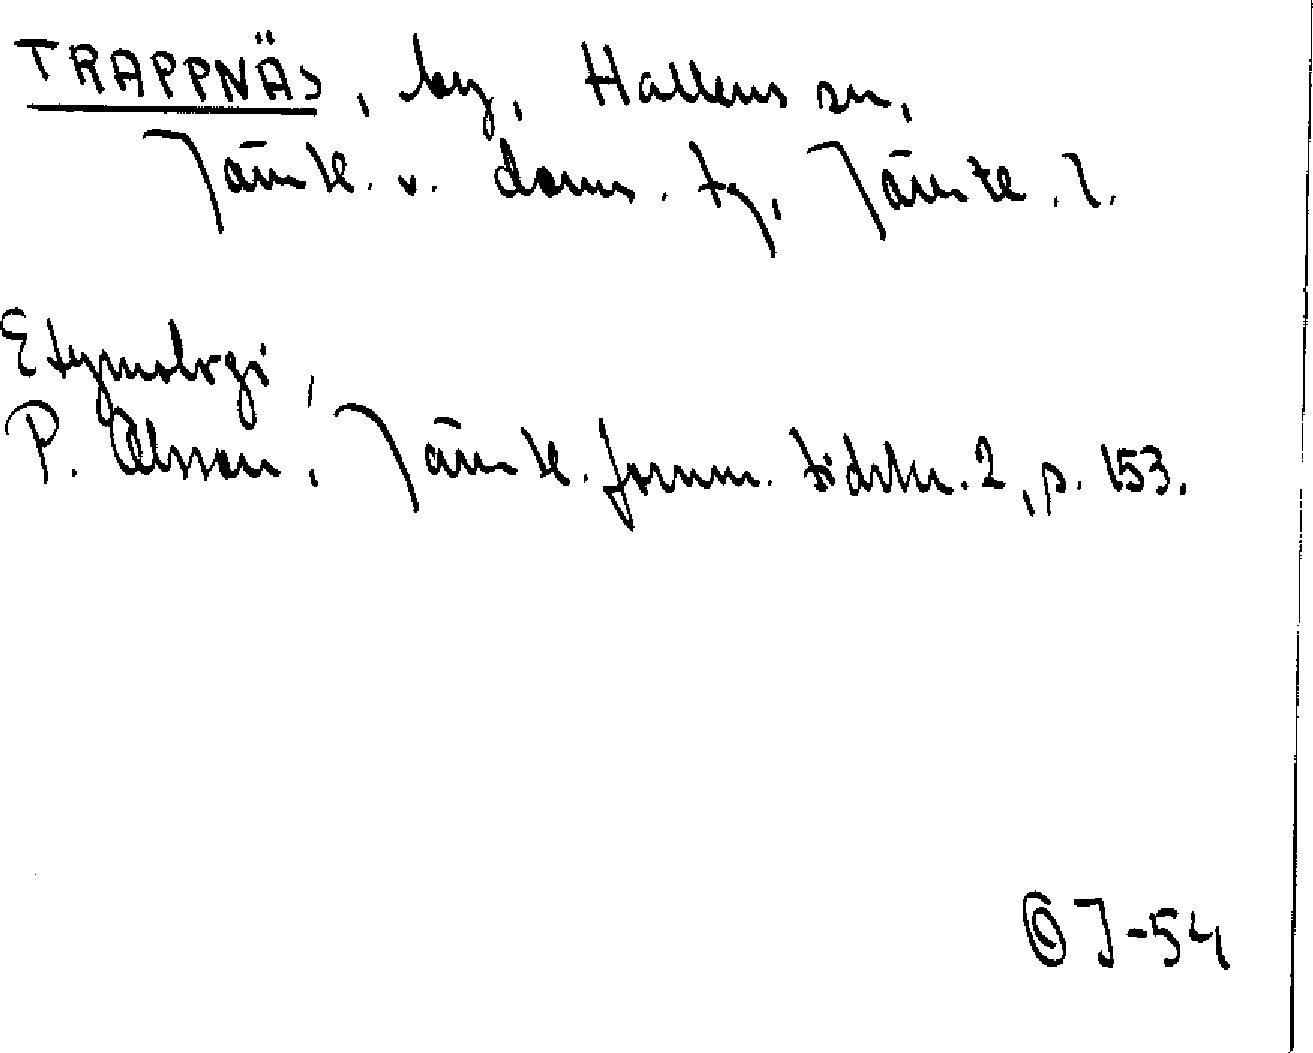 TRAPPNÄS, by, Hallens sn,
Jämtl. v. doms. tg, Jämtl. l.
Etymologi,
P. Olsson, Jämtl. fornm. tidskr. 2, p. 153.
J-54